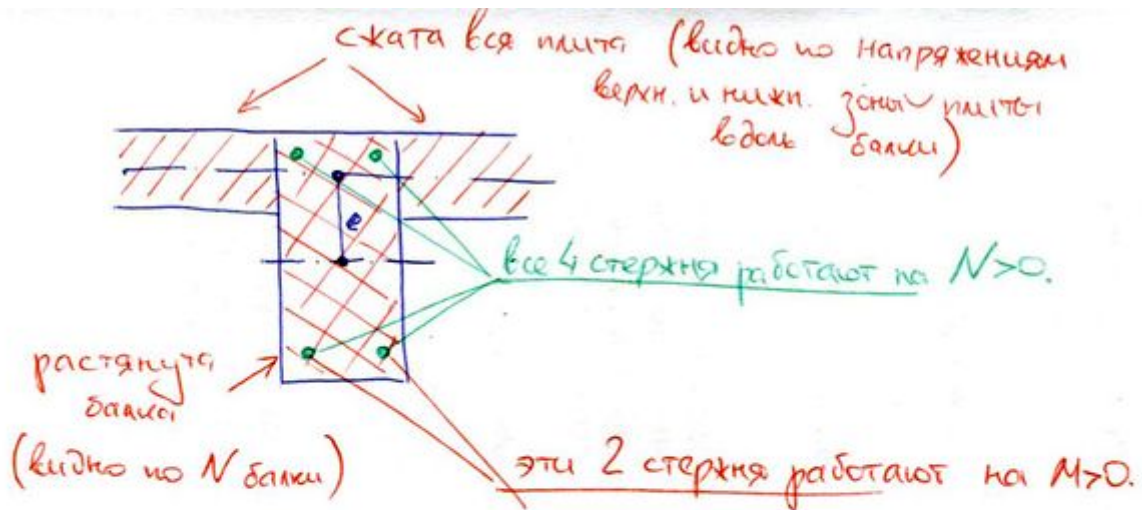 сжата вся плита (видно по напряжениям
верхн. и нижн. зоны плиты
вдоль балки)
e
все 4 стержня работают на N>0.
растянута
балка
(видно по N балки)
эти 2 стержня работают на M>0.